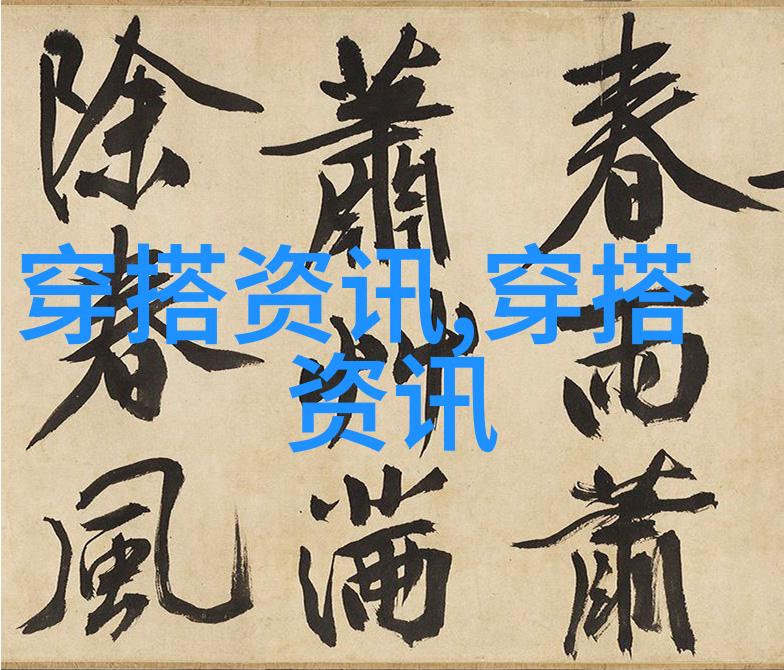 春雨蕭
蕭艸滿
除春風
穿搭资讯,穿搭
资讯